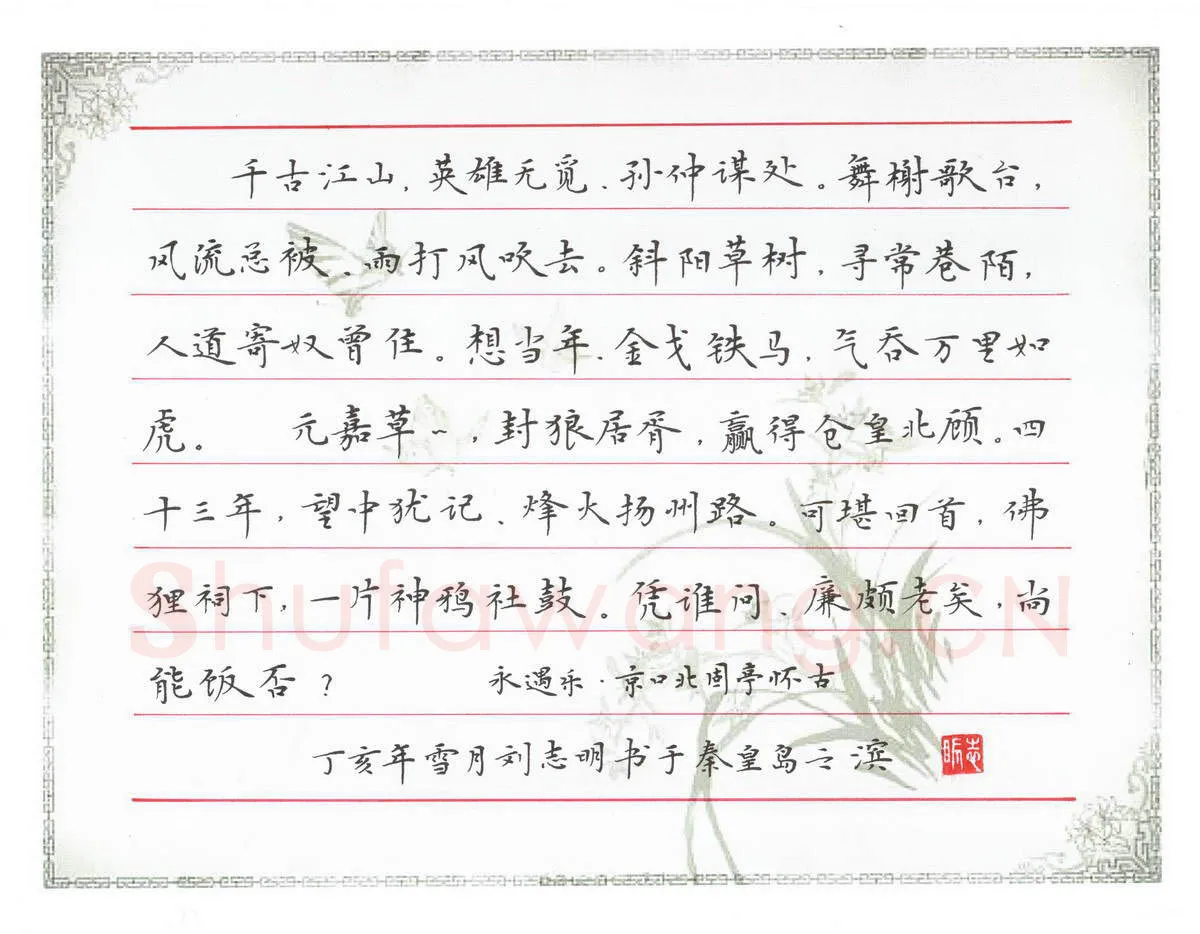 千古江山，英雄无觅、孙仲谋处。舞榭歌台，
风流总被、雨打风吹去。斜阳草树，寻常巷陌，
人道寄奴曾住。想当年、金戈铁马，气吞万里如
虎。 元嘉草~，封狼居胥，赢得仓皇北顾。四
十三年，望中犹记、烽火扬州路。可堪回首，佛
狸祠下，一片神鸦社鼓。凭谁问、廉颇老矣，尚
能饭否？ 永遇乐·京口北固亭怀古
丁亥年雪月刘志明书于秦皇岛之滨
志明
Shufawang.CN